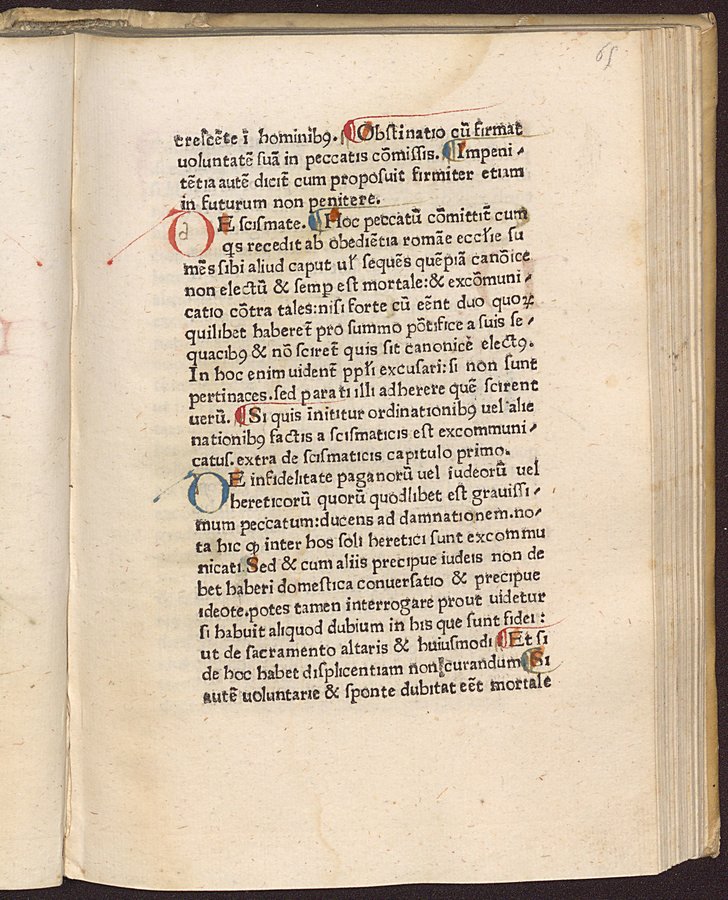 65
crescēte ī hominibꝯ. Obstinatio cū firmat
uoluntatē suā in peccatis cōmissis. Impeni-
tētia autē dicit̄ cum proposuit firmiter etiam
in futurum non penitere.
DE scismate. Hoc peccatū cōmittit̄ cum
qs recedit ab obediētia romāe eccłie su
mēs sibi aliud caput uł sequēs quēpiā canōice
non electū & semp est mortale: & excōmuni-
catio cōtra tales: nisi forte cū eēnt duo quoꝝ
quilibet haberet̄ pro summo pōtifice a suis se-
quacibꝯ & nō sciret̄ quis sit canonice electꝯ.
In hoc enim uident̄ ppłi excusari: si non sunt
pertinaces. sed parati illi adherere quē scirent
uerū. Si quis inititur ordinationibꝯ uel alie
nationibꝯ factis a scismaticis est excommuni-
catus. extra de scismaticis capitulo primo.
DE infidelitate paganorū uel iudeorū uel
hereticorū quorū quodlibet est grauissi-
mum peccatum: ducens ad damnationem. no-
ta hic ꝙ inter hos soli heretici sunt excommu
nicati. Sed & cum aliis precipue iudeis non de
bet haberi domestica conuersatio & precipue
ideote. potes tamen interrogare prout uidetur
si habuit aliquod dubium in his que sunt fidei:
ut de sacramento altaris & huiusmodi Et si
de hoc habet displicentiam non curandum Si
autē uoluntarie & sponte dubitat eēt mortale